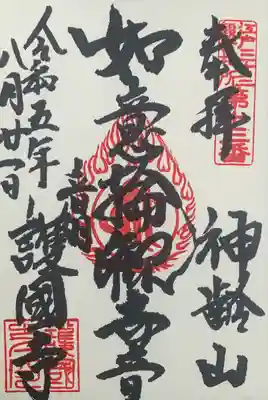 奉拝
神齢山
如意輪観世音
音羽
護國寺
令和五年
八月廿一日